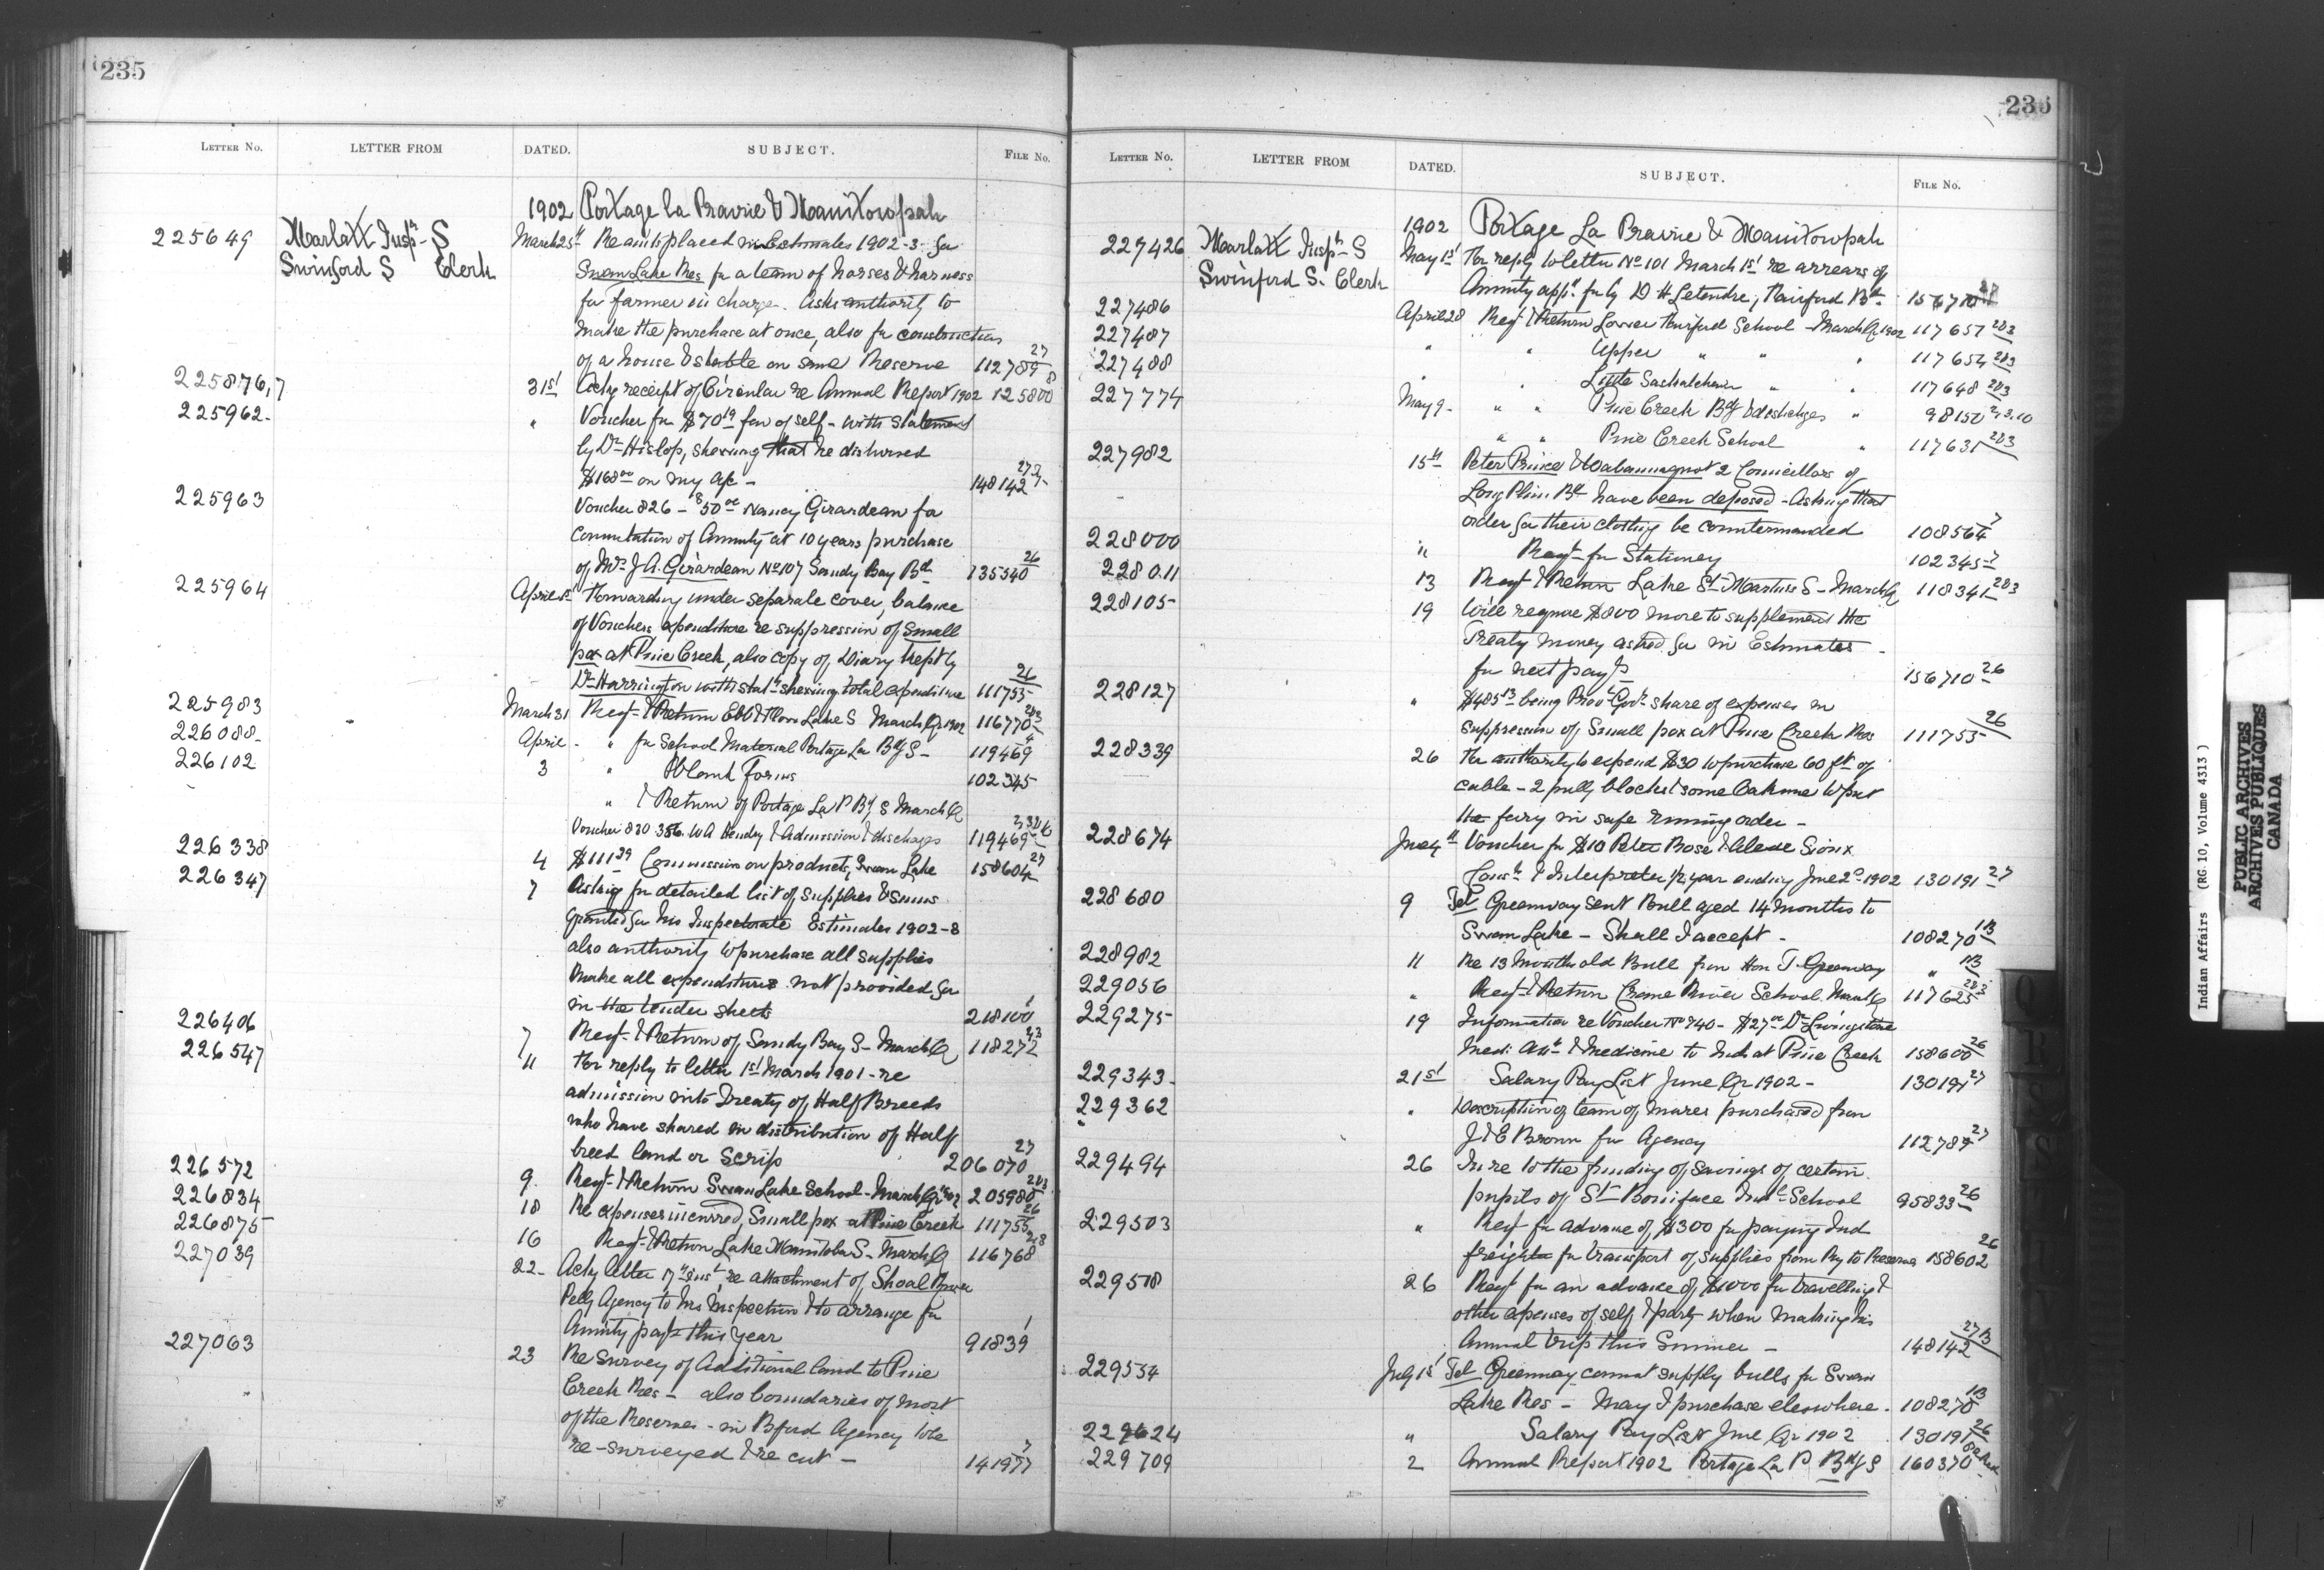 235
LETTER NO. LETTER FROM DATED. SUBJECT. FILE NO.
1902 Portage la Prairie & Manitowpah
225649 Marlatt Inspr S March 25th Re amts placed in Estimates 1902-3 for
Swinford S Clerk Swan Lake Res for a team of horses & harness
for farmer in charge. Asks authority to
make the purchase at once, also for construction
of a house & stable on same Reserve 112789 27
225876,7 31st Ackg receipt of Circular re Annual Report 1902 125800 8
225962 " Voucher for $70 19 fav of self - with Statement
by Dr Hislop, shewing that he disbursed
$168 00 on my a/c - 148142 27
225963 Voucher 826 - $50 00 Nancy Girardeau for
Commutation of Annuity at 10 years purchase
of Mrs J A. Girardeau No 107 Sandy Bay Bd 135540 26
225964 April Forwarding under separate cover, balance
of Vouchers expenditure re suppression of Small
pox at Pine Creek, also copy of Diary kept by
Dr Harrington with statt shewing total expenditure 111755 26
225983 March 31 Reqt & Return Ebb & Flow Lake S March Qr 1902 116770 283
226088 April " for School Material Portage La Bdg S - 119469 4
226102 3 " Blank Forms 102345
" & Return of Portage La P Bdg S March Qr
Voucher 830 386 W A Hendry & Admission & discharges 119469
226338 4 $111 39 Commission on products, Swan Lake 158604 27
226347 7 Asking for detailed list of supplies & sums
granted for his Inspectorate Estimates 1902-3
also authority to purchase all supplies
make all expenditures not provided for
in the tender sheets 218100 1
226406 7 Reqt & Return of Sandy Bay S - March Qr 118272 283
226547 11 For reply to letter 1st March 1901 - re
admission into Treaty of Half Breeds
who have shared in distribution of Half
breed land or Scrip 206070 27
226572 9 Reqt & Return Swan Lake School - March Qr 02 205980 283
226834 18 Re expenses incurred, Small pox at Pine Creek 111755 26
226875 16 Reqt & Return Lake Manitoba S - March Qr 116768 283
227039 22 Ackg letter 17th inst re attachment of Shoal River
Pelly Agency to his Inspection & to arrange for
Annuity payt this year 91839 1
227063 23 Re survey of Additional land to Pine
Creek Res - also boundaries of most
of the Reserves - in Agency to be
re-surveyed & re cut - 141977 7
236
LETTER NO. LETTER FROM DATED. SUBJECT. FILE NO.
1902 Portage La Prairie & Manitowpah
227426 Marlatt Inspr S May 1st For reply to letter No 101 March 1st re arrears of
Swinford S. Clerk Annuity appd for by D H Letendre, Fairford Bd 156710
227486 April 28 Reqt & Return Lower Fairford School - March Qr 1902 117657 283
227487 " " Upper " " " 117654 283
227488 " " Little Saskatchewan " " 117648 283
227774 May 9 " " Pine Creek Bdg & discharges " 98150
" " Pine Creek School " 117631 283
227982 15th Peter Prince & 2 Councillors of
Long Plain Bd have been deposed - Asking that
order for their clothing be countermanded 108564 7
228000 " Reqt for Stationery 102345 7
228011 13 Reqt & Return Lake St Martins S - March Qr 118341 283
228105 19 Will require $800 more to supplement the
Treaty money asked for in Estimates
for next payt 156710 26
228127 " $485 13 being Prov Govt share of expenses in
suppression of Small pox at Pine Creek Res 111755 26
228339 26 For authority to expend $30 to purchase 60 ft of
cable - 2 pully blocks & some Oakum to put
the ferry in safe running order -
228674 June 4th Voucher for $10 Peter Bose Sioux
Const & Interpreter 1/2 year ending June 1902 130191 27
228680 9 Tel Greenway sent Bull aged 14 months to
Swan Lake - Shall I accept - 108270 13
228982 11 Re 13 months old Bull from Hon T. Greenway " 13
229056 " Reqt & Return Crane River School March Qr 117625 283
229275 19 Information re Voucher No 740 - $27 00 Dr Livingstone
Med: Att & Medicine to Inds at Pine Creek 158600 26
229343 21st Salary Pay List June Qr 1902 - 130191 27
229362 " Description of team of mares purchased from
J & E Brown for Agency 112789 27
229494 26 In re to the funding of savings of certain
pupils of St Boniface Indl School 95833 26
229503 " Reqt for advance of $300 for paying Ind
freight for transport of supplies from Ry to Reserves 158602 26
229518 26 Reqt for an advance of $1000 for travelling &
other expenses of self & party when making his
Annual trip this Summer - 148142
229554 July 1st Tel Greenway cannot supply bulls for Swan
Lake Res - May I purchase elsewhere. 108270 13
229624 " Salary Pay List June Qr 1902 130191 26
229709 2 Annual Report 1902 Portage La P Bdg S 160370
Indian Affairs (RG. 10, Volume 4313 )
PUBLIC ARCHIVES
ARCHIVES PUBLIQUES
CANADA
Q
R
S